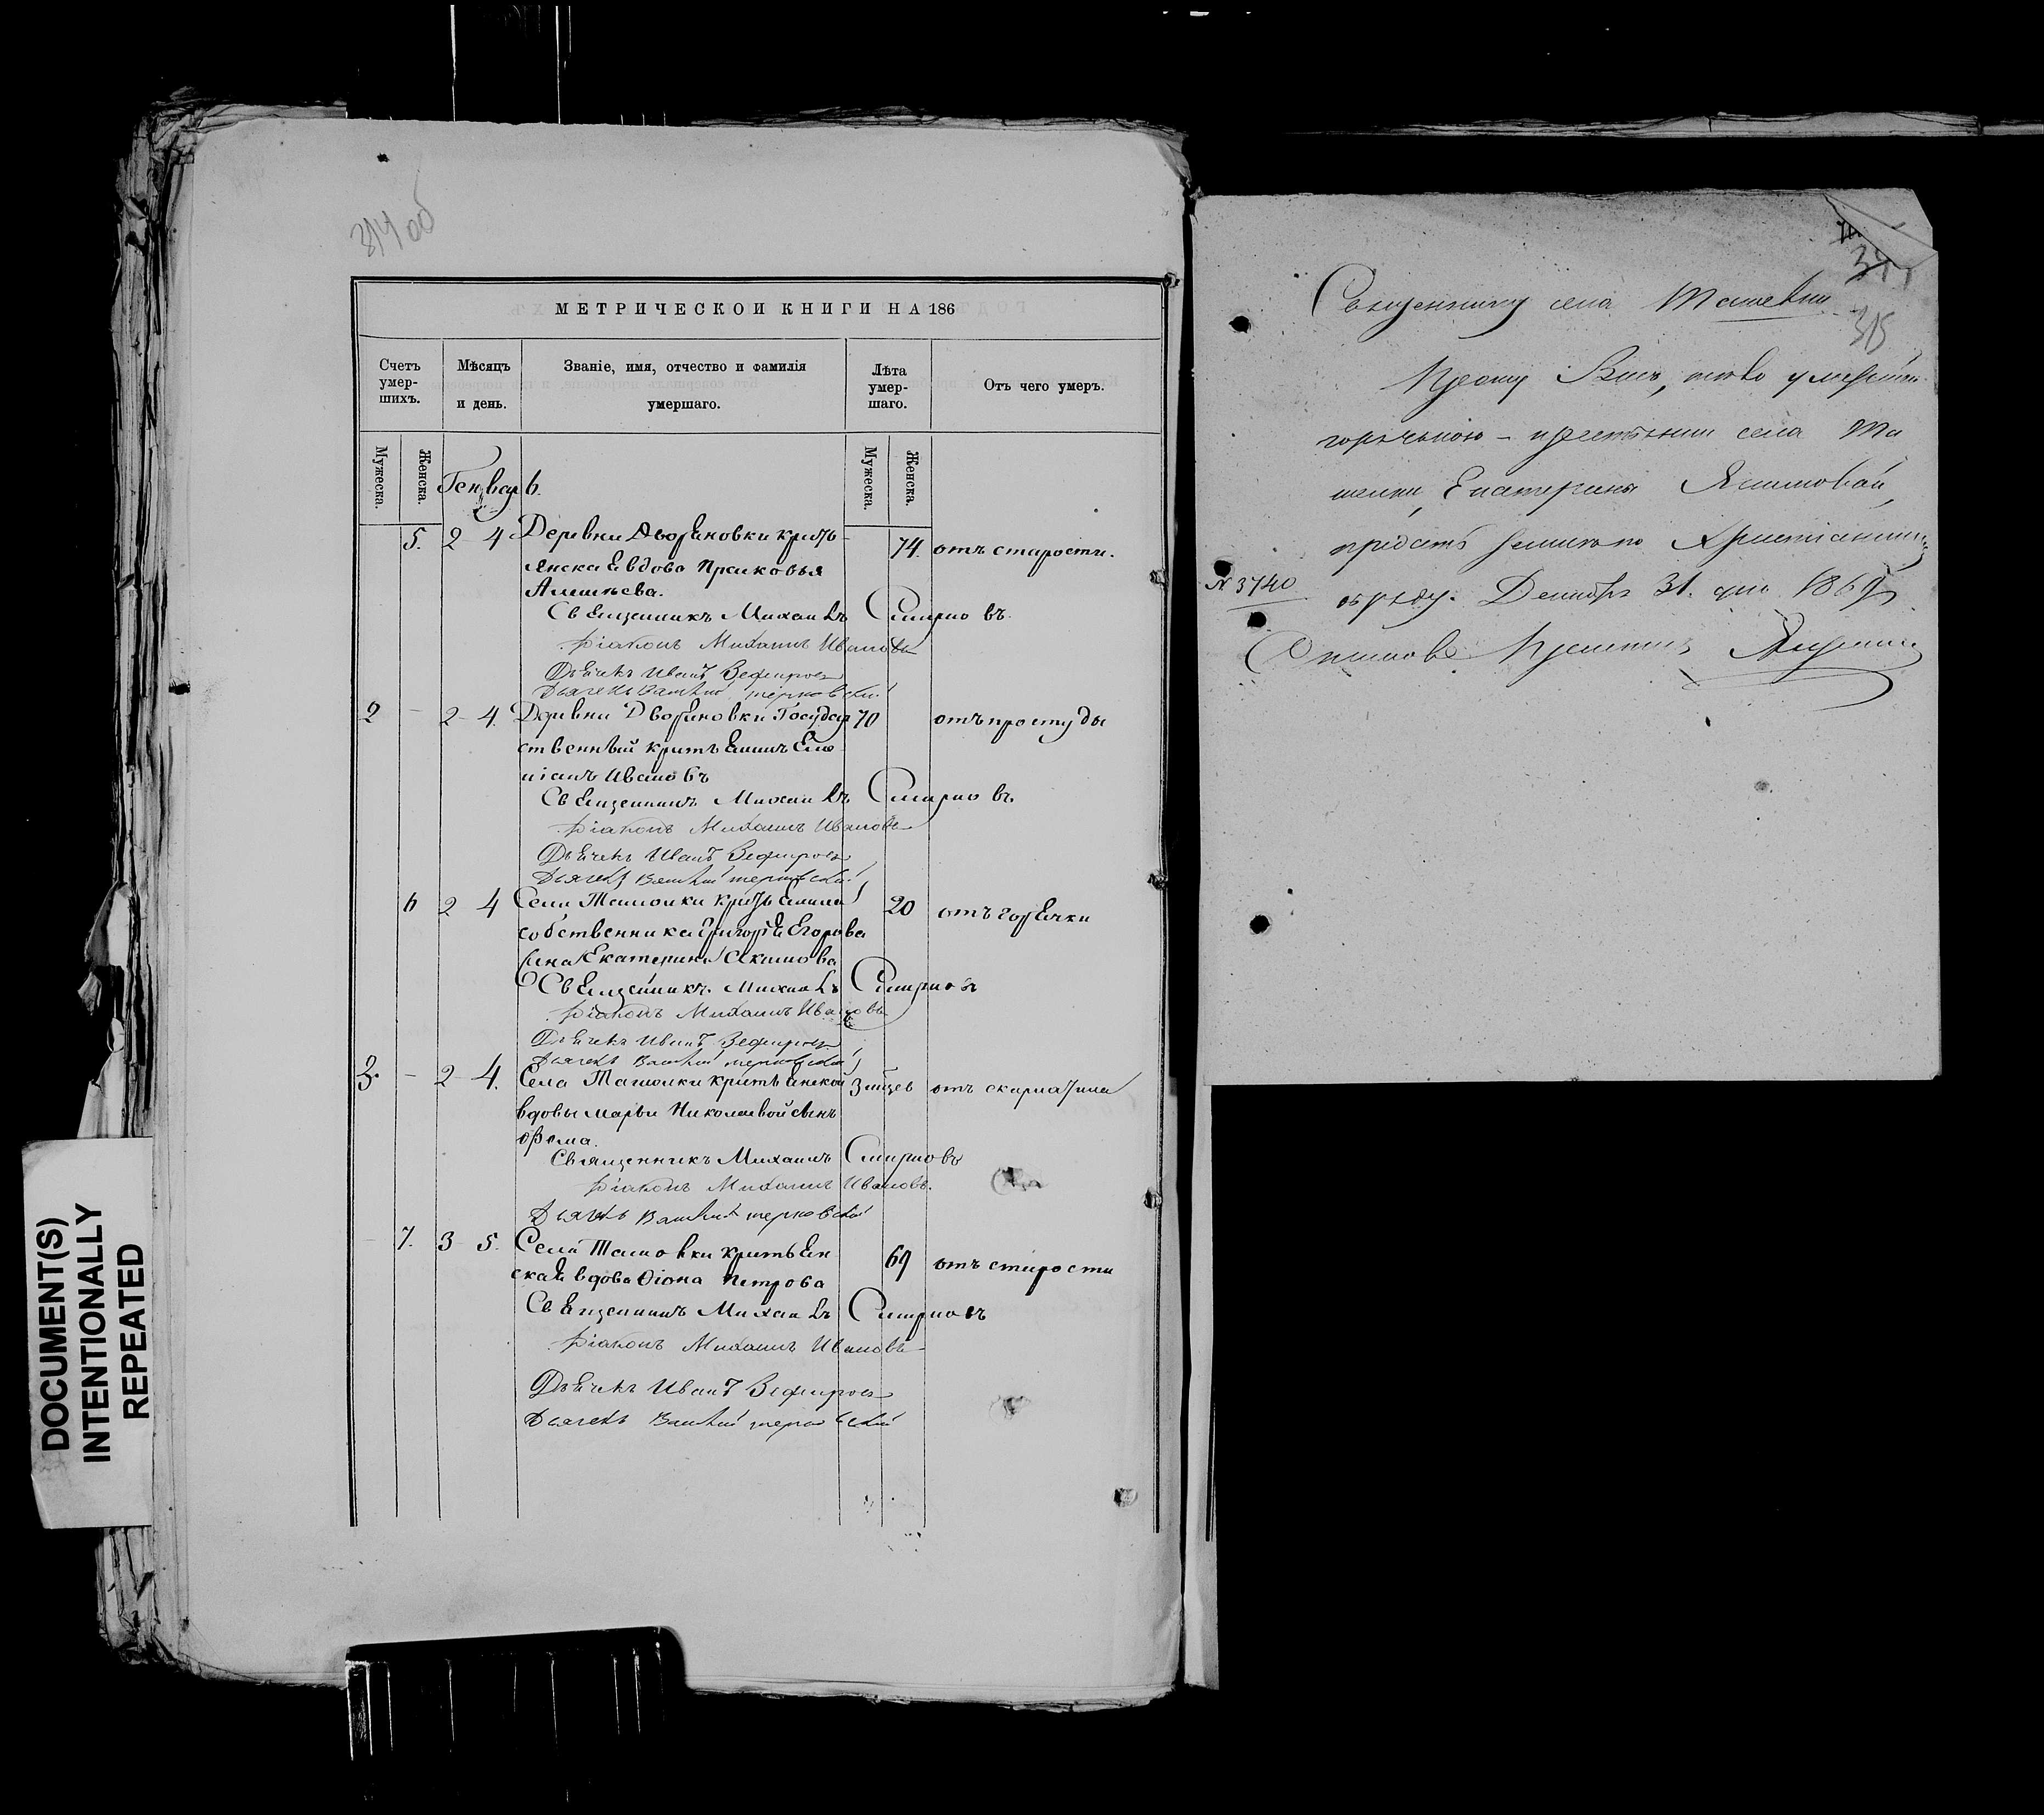 314 об
МЕТРИЧЕСКОЙ КНИГИ НА 186
Счетъ умер-шихъ.
Мѣсяцъ и день.
Званіе, имя, отчество и фамилія умершаго.
Лѣта умер-шаго.
Отъ чего умеръ.
Мужеска.
Женска.
Мужеска.
Женска.
Генварь.
5. 2 4 Деревни Дворяновки кресть 74. отъ старости.
янская вдова Прасковья
Алексѣева.
Священникъ Михаилъ Смирновъ.
Діаконъ Михаилъ Ивановъ
Дьячекъ Иванъ Зефировъ
Дьячекъ терновский
2 - 2 4. Деревни Дворяновки Государ 70 отъ простуды
ственный крестьянинъ Еме
ліанъ Ивановъ
Священникъ Михаилъ Смирновъ.
Діаконъ Михаилъ Ивановъ
Дьячекъ Иванъ Зефировъ
Дьячекъ терновский
6 2 4 Села Ташолки крестьянина 20 отъ горячки
собственника Григорья Егорова
жена Екатерина Якимова
Священникъ Михаилъ Смирновъ
Діаконъ Михаилъ Ивановъ
Дьячекъ Иванъ Зефировъ
Дьячекъ терновский
3. - 2 4. Села Ташолки крестьянской 3 мцев отъ скарлатина
вдовы Марьи Николаевой сынъ
Священникъ Михаилъ Смирновъ
Діаконъ Михаилъ Ивановъ.
Дьячекъ терновский
7. 3 5. Села крестьян 69 отъ старости
ская вдова Ѳіона Петрова
Священникъ Михаилъ Смирновъ
Діаконъ Михаилъ Ивановъ
Дьячекъ Иванъ Зефировъ
Дьячекъ терновский
DOCUMENT(S)
INTENTIONALLY
REPEATED
315
Священнику села
Прошу Васъ, тѣло умершей
горячкою - крестьянки села Та
шолки, Екатерины Якимовой,
предать землѣ по Христианскому
№ 3740
обряду. Декабря 31. дня 1869